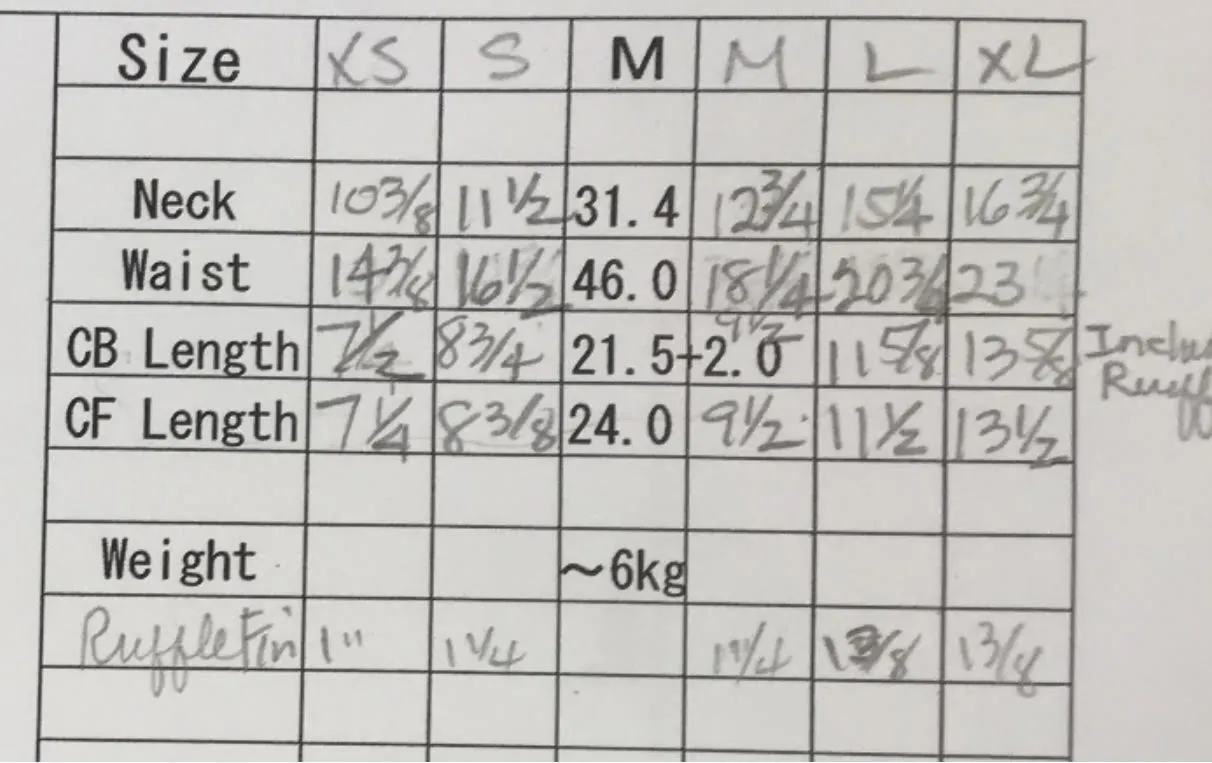 Size XS S M M L XL
Neck 10 3/8 11 1/2 31.4 12 3/4 15 1/4 16 3/4
Waist 14 3/8 16 1/2 46.0 18 1/4 20 3/4 23
CB Length 7 1/2 8 3/4 21.5+2.0 9 1/2 11 5/8 13 5/8 Inclu
Ruff
CF Length 7 1/4 8 3/8 24.0 9 1/2 11 1/2 13 1/2
Weight ~6kg
Ruffle Fin 1" 1 1/4 1 1/4 1 3/8 1 3/8